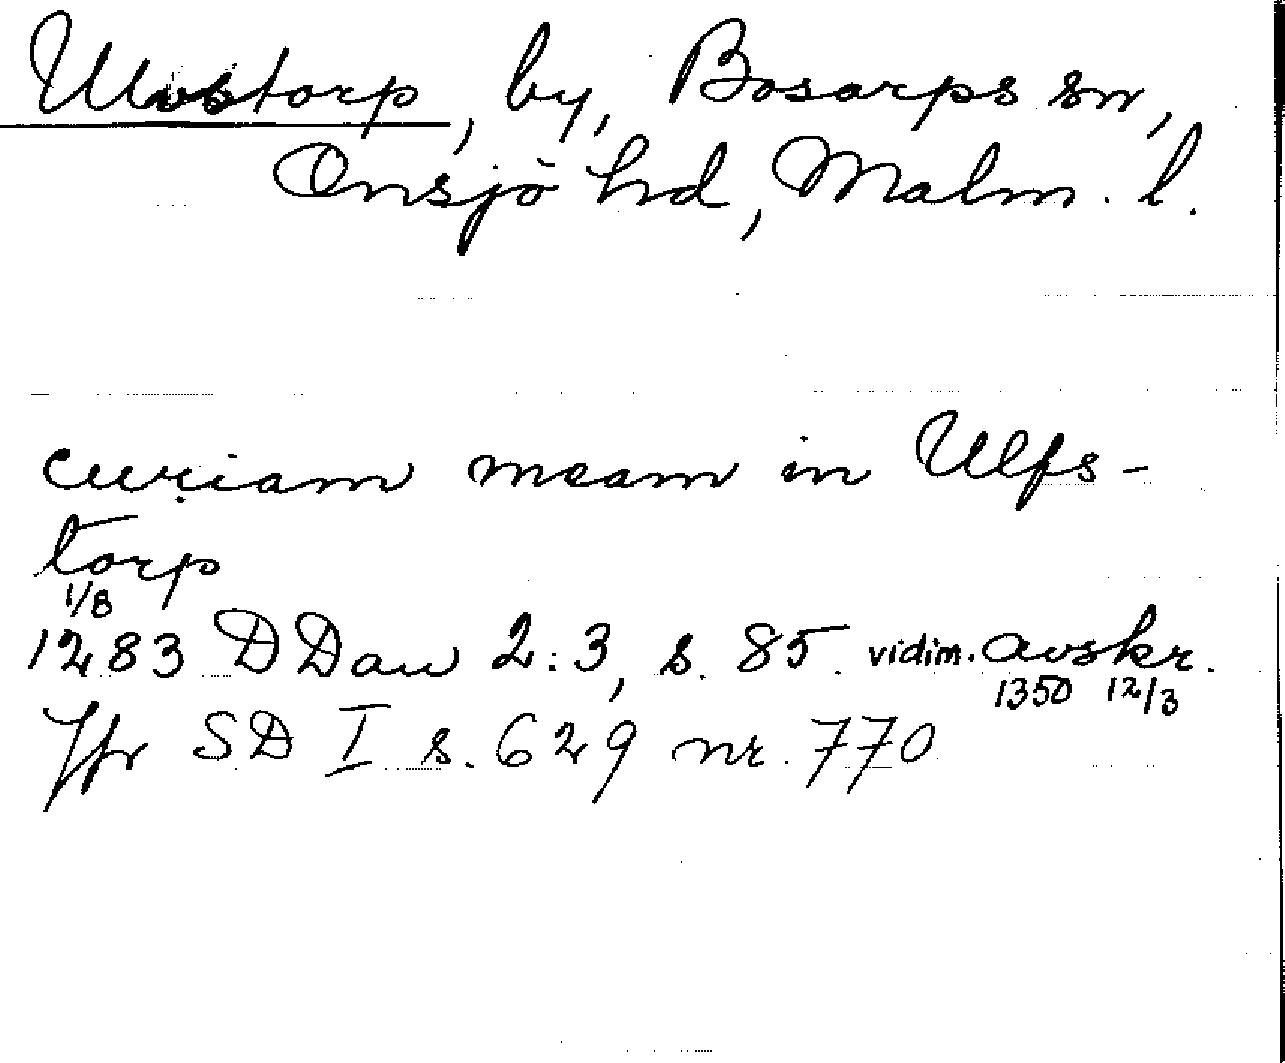 Ulvstorp, by, Bosarps sn,
Onsjö hd, Malm. l.
curiam meam in Ulfs-
torp
1/8
1283 DDan 2:3, s. 85. vidim. avskr.
1350 12/3
Jfr SD I s. 629 nr. 770